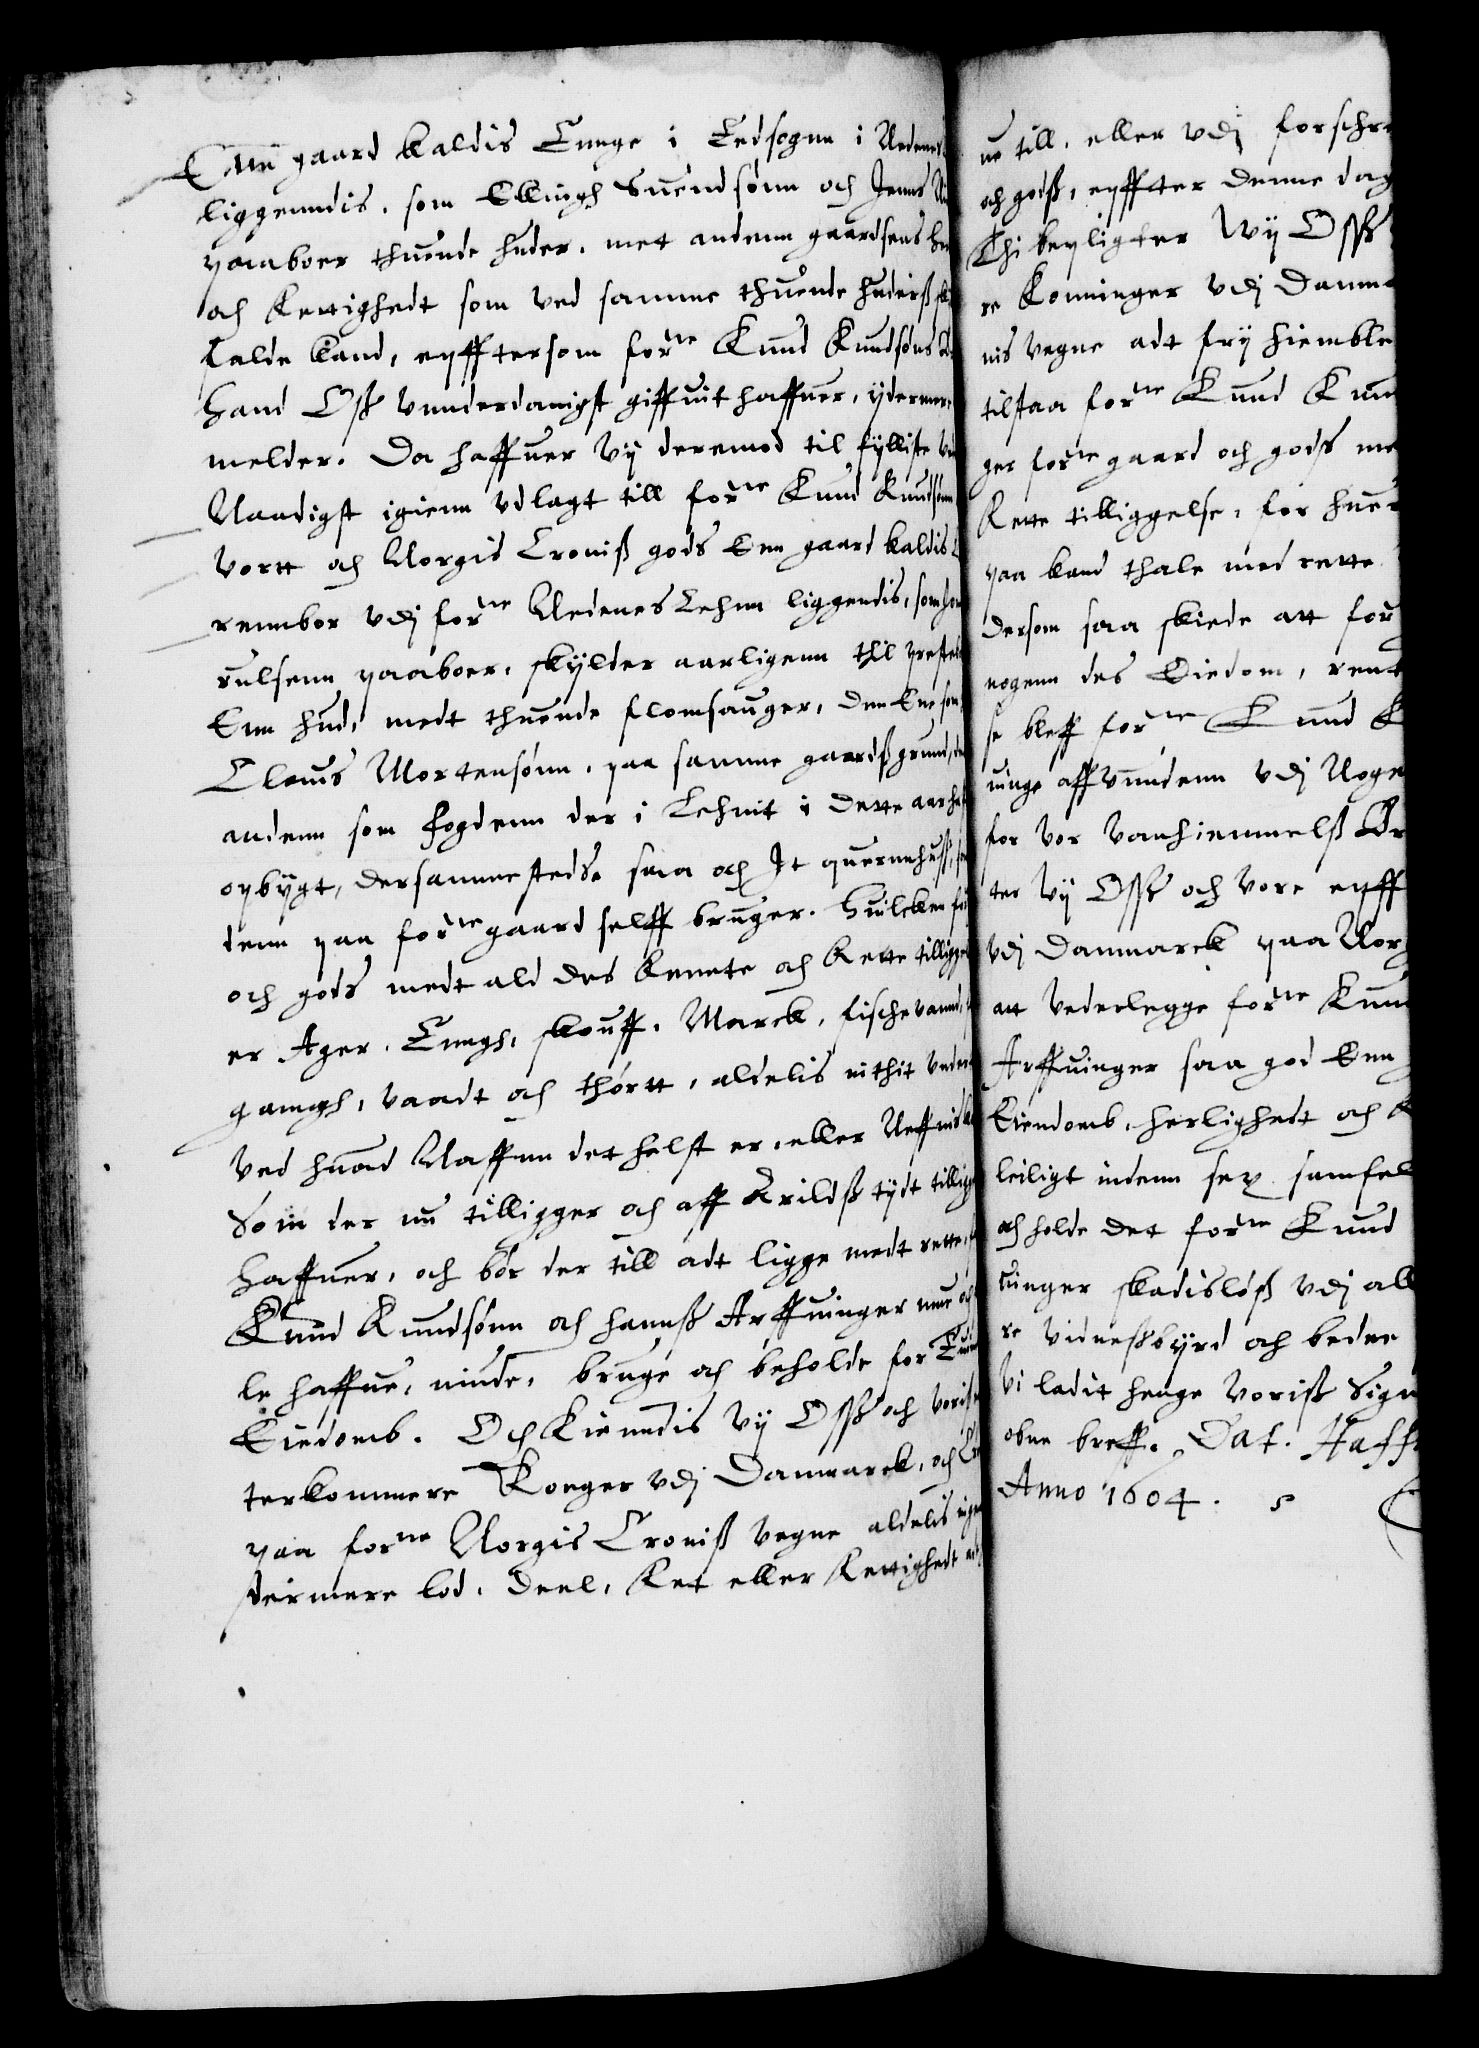 Enn gaard kaldis Tunge i Ledsogen i Nedenes
liggenndis, som Ellingh Suendsønn och Jenns
paaboer thuende huder, met andenn gaardsens
och Rettighedt som ved samme thuende huderß
falde kand, epfftersom forne Knud Knudsøns
hand Oß vnnderdanigst giffuit haffuer, ydermere
melder. Da haffuer vy deremod til fylliste
Naadigst igienn vdlagt till forne Knud Knudsønn
vortt och Norgis Croniß gods Enn gaard kaldis
rennbor vdj forne Nedenes Lehnn liggendis, som
rulsenn paaboer, skylder aarligenn thil
Enn hud, medt thuende flomsauger, den Ene som
Clauds Mortensønn, paa samme gaardß grund,
andenn som fogdenn der i Lehnit i dette aar
opbygt, dersammestedß saa och It quernehuß
denn paa forne gaard selff bruger. Huilcken
och gods medt ald des Rennte och Rette tilligge
er Ager, Enngh, skouff, Marck, fischevannd,
ganngh, vaadt och thørtt, aldelis inthit vnder
ved huad Naffnn det helst er, eller Neffnis
Som der nu tilligger och aff Arildß tydt tilligget
haffuer, och bør der till adt ligge medt rette,
Knnd Knudsønn och hannß Arffuinger mue och
le haffue, niude, bruge och beholde for
Eiedomb. Och Kienndis vy Oss och voriß
terkommere Konger vdj Danmarck, och
paa forne Norgis Croniß vegne aldelis ingen
ydermere lod, deel, Ret eller Rettighedt
ue till, eller vdj forschre
och godß, epffter denne dag
Thi bepligter Wy Oss
re Konninger vdj Danma
nis vegne adt fry hiemble
tilstaa forne Knud Knu
ger forne gaard och gods me
Rette tilliggelse, for huer
paa kand thale med rette
dersom saa skiede att for
nogenn des Eiedom, rent
se bleff forne Knud K
uinge affvunndenn vdj Noge
for vor vanhiemmelß Br
ter vy Oss och vore epff
vdj Danmarck paa Norg
att vederlegge forne Knud
Arffuinger saa god Enn
Eiendomb, herlighedt och R
leiligt indenn sex samfel
och holde det forne Knud
uinger skadisløß vdj all
re vidneßbyrd och bedre
vi ladit henge voriß Sign
obne breff. Dat. Haffn
Anno 1604.